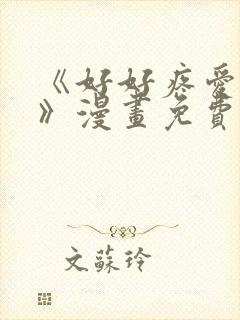 《好好疼愛
》漫畫免費
文蘇玲